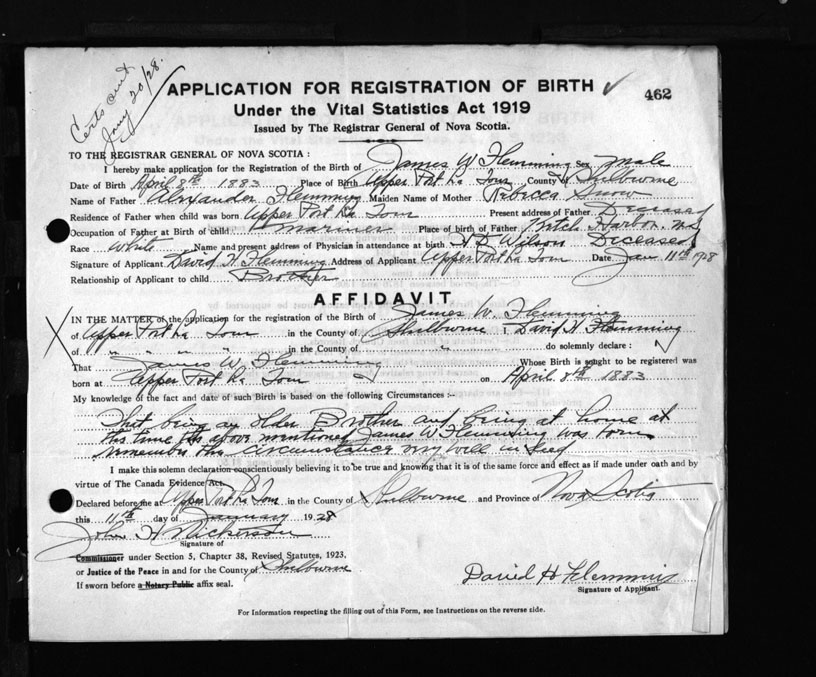 Certs out
Jany 20/28.
APPLICATION FOR REGISTRATION OF BIRTH ✓
462
Under the Vital Statistics Act 1919
Issued by The Registrar General of Nova Scotia.
TO THE REGISTRAR GENERAL OF NOVA SCOTIA :
I hereby make application for the Registration of the Birth of James W Flemming Sex male
Date of Birth April 8th 1883 Place of Birth Upper Port La Tour County of Shelburne
Name of Father Alexander Flemming Maiden Name of Mother Rebecca Snow
Residence of Father when child was born Upper Port La Tour Present address of Father Deceased
Occupation of Father at Birth of child mariner Place of birth of Father Ketch Harbor. N.S
Race White Name and present address of Physician in attendance at birth Wilson Deceased
Signature of Applicant David H. Flemming Address of Applicant Upper Port La Tour Date Jan 11th 1928
Relationship of Applicant to child Brother
AFFIDAVIT
IN THE MATTER of the application for the registration of the Birth of James W. Flemming
of Upper Port La Tour in the County of Shelburne David H Flemming
of " " " " in the County of " do solemnly declare :
That James W Flemming Whose Birth is sought to be registered was
born at Upper Port La Tour on April 8th 1883
My knowledge of the fact and date of such Birth is based on the following Circumstances :-
That being an older Brother and being at home at
the time the above mentioned James W Flemming was born
remember the circumstance very well indeed
I make this solemn declaration conscientiously believing it to be true and knowing that it is of the same force and effect as if made under oath and by
virtue of The Canada Evidence Act.
Declared before me at Upper Port La Tour in the County of Shelburne and Province of Nova Scotia
this 11th day of January 1928
John H Nickerson
Signature of
Commissioner under Section 5, Chapter 38, Revised Statutes, 1923.
or Justice of the Peace in and for the County of Shelburne
If sworn before a Notary Public affix seal.
David H Flemming
Signature of Applicant.
For Information respecting the filling out of this Form, see Instructions on the reverse side.